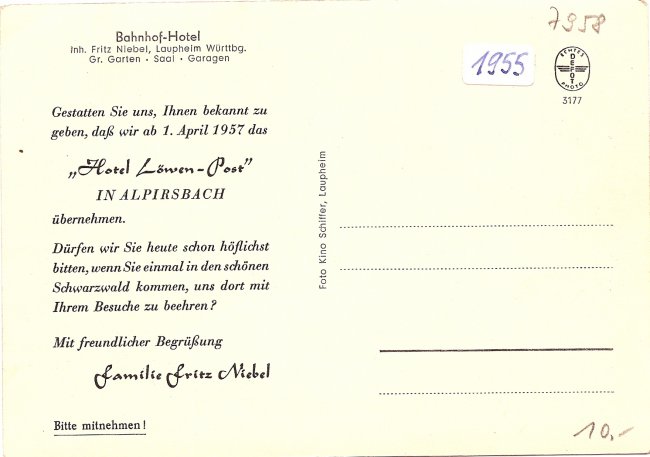 Bahnhof-Hotel
Inh. Fritz Niebel, Laupheim Württbg.
Gr. Garten · Saal · Garagen
Gestatten Sie uns, Ihnen bekannt zu
geben, daß wir ab 1. April 1957 das
„Hotel Löwen-Post"
IN ALPIRSBACH
übernehmen.
Dürfen wir Sie heute schon höflichst
bitten, wenn Sie einmal in den schönen
Schwarzwald kommen, uns dort mit
Ihrem Besuche zu beehren?
Mit freundlicher Begrüßung
Familie Fritz Niebel
Bitte mitnehmen!
Foto Kino Schiffer, Laupheim
7958
1955
ECHTES
DEFOT
PHOTO
3177
10,-